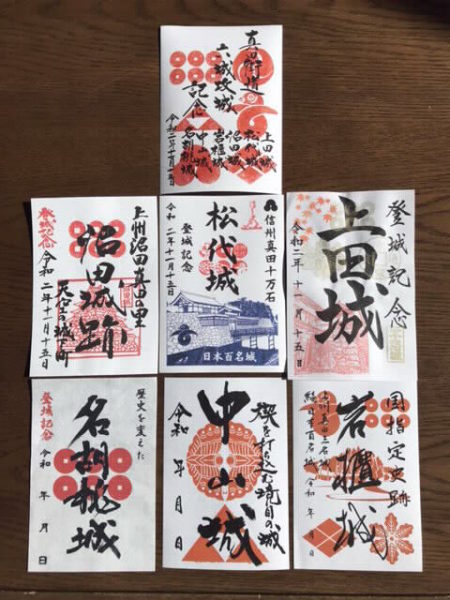 真田街道
六城攻城
記念
上田城
松代城
沼田城
岩櫃城
中山城
名胡桃城
令和二年十一月十五日
上州沼田真田の里
沼田城跡
天空の城下町
登城記念
令和二年十一月十五日
信州真田十万石
松代城
登城記念
令和二年十一月十五日
日本百名城
登城記念
上田城
令和二年十一月十五日
歴史を変えた
名胡桃城
登城記念
令和 年 月 日
楔を打ち込む境目の城
中山城
令和 年 月 日
国指定史跡
岩櫃城
続日本百名城
令和 年 月 日